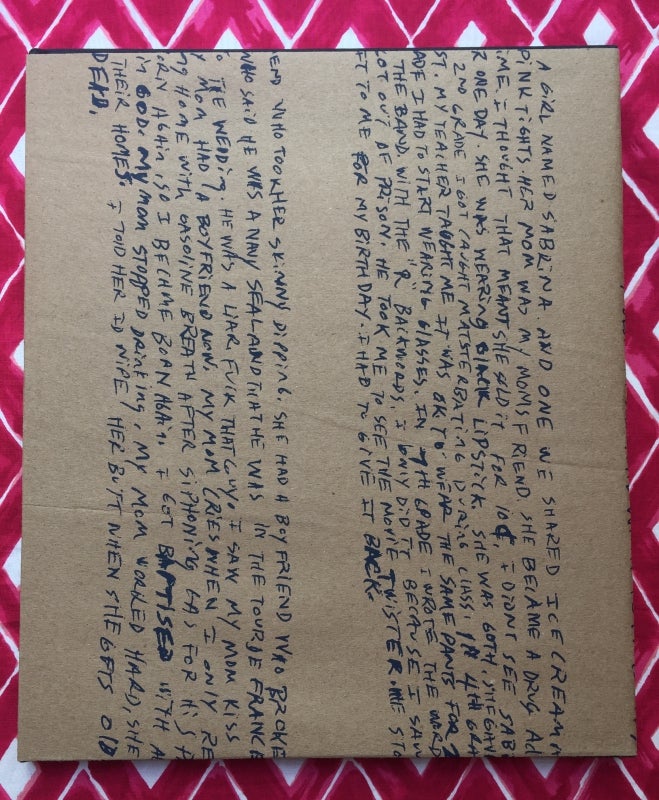 A GIRL NAMED SABRINA AND ONE WE SHARED ICE CREAM
PINK TIGHTS. HER MOM WAS MY MOMS FRIEND SHE BECAME A DRUG AD
IME, I THOUGHT THAT MEANT SHE SOLD IT FOR 10¢, I DIDNT SEE SAB
R ONE DAY. SHE WAS WEARING BLACK LIPSTICK SHE WAS GOTH. SHE GAV
2ND GRADE I GOT CAUGHT MAISTERBATING DURING CLASS. IN 4TH GRA
ST. MY TEACHER TAUGHT ME IT WAS OK TO WEAR THE SAME PANTS FOR 2
ADE I HAD TO START WEARING GLASSES. IN 7TH GRADE I WROTE THE WORD
THE BAND WITH THE "R" BACKWORDS. I ONLY DID IT BECAUSE I SAW
GOT OUT OF PRISON. HE TOOK ME TO SEE THE MOVIE TWISTER. HE STO
FT TO ME FOR MY BIRTHDAY. I HAD TO GIVE IT BACK.
END WHO TOOK HER SKINNY DIPPING. SHE HAD A BOYFRIEND WHO BROKE
WHO SAID HE WAS A NAVY SEAL AND THAT HE WAS IN THE TOUR DE FRANCE
THE WEDDING. HE WAS A LIAR FUK THAT GUY. I SAW MY MOM KISS
MOM HAD A BOYFRIEND NOW. MY MOM CRIES WHEN I ONLY RE
NG HOME WITH GASOLINE BREATH AFTER SIPHONING GAS FOR HIS
ORN AGAIN, SO I BECAME BORN AGAIN. I GOT BAPTISED WITH A
IN GOD. MY MOM STOPPED DRINKING, MY MOM WORKED HARD, SHE
THEIR HOMES. I TOLD HER ID WIPE HER BUTT WHEN SHE GETS OLD
DEAD.